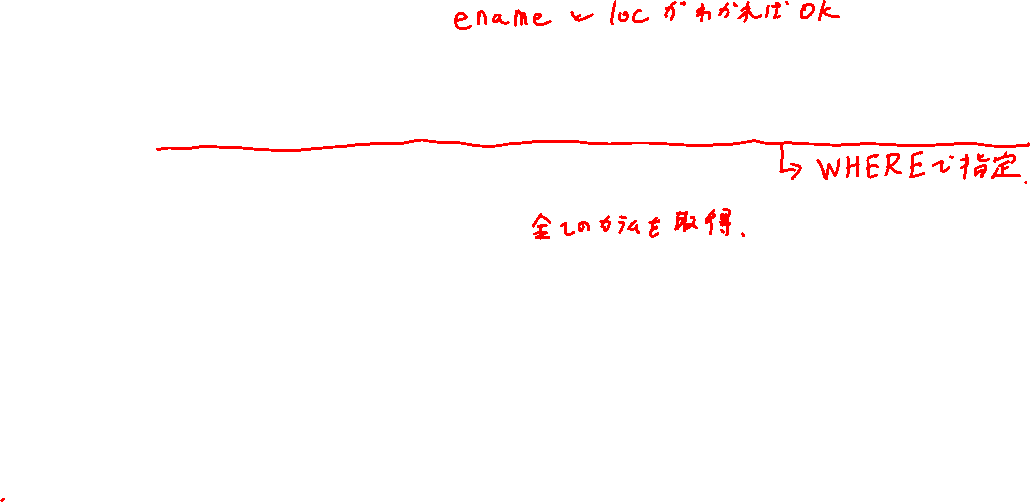 enameとlocがわかればOK
↳WHEREで指定.
全てのカラムを取得.